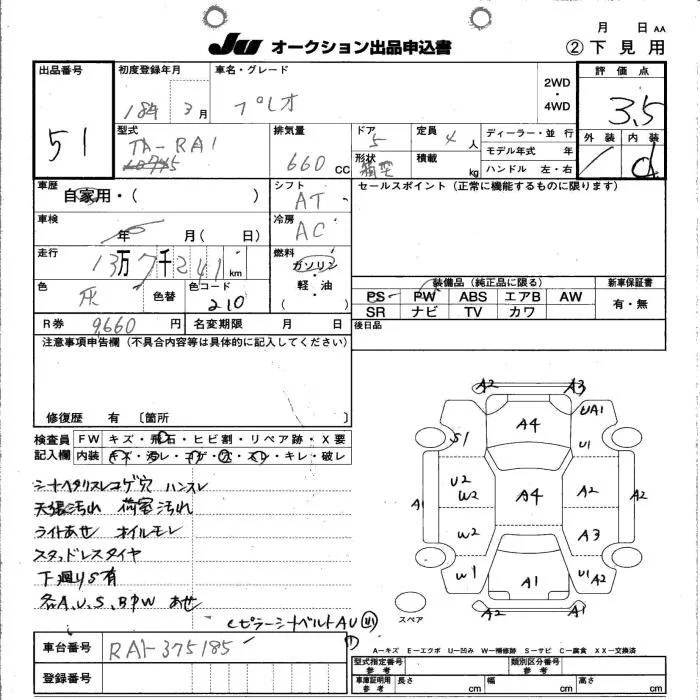 月 日 AA
JU オークション出品申込書 ② 下見用
出品番号 初度登録年月 車名・グレード 評価点
51 18年 3月 プレオ 2WD・4WD 3.5
型式 排気量 ドア 定員 ディーラー・並行 外装 内装
TA-RA1 660CC 5 4人 モデル年式 年 d
形状 積載 kg ハンドル 左・右
箱型
車歴 シフト セールスポイント(正常に機能するものに限ります)
自家用・( ) AT
車検 冷房
年 月( 日) AC
走行 燃料
13万7千241km ガソリン・軽油
色 色替 色コード ( )
灰 210
装備品(純正品に限る) 新車保証書
PS PW ABS エアB AW 有・無
SR ナビ TV カワ
R券 9,660円 名変期限 月 日 後日品
注意事項申告欄(不具合内容等は具体的に記入してください)
修復歴 有 〔箇所 〕
検査員記入欄 FW キズ・飛石・ヒビ割・リペア跡・X要
内装 キズ・汚レ・コゲ・穴・スレ・キレ・破レ
シートヘタリスレコゲ穴 ハンスレ
天張汚れ 荷室汚れ
ライトあせ オイルモレ
スタッドレスタイヤ
下廻りS有
各A、U、S、BPW あせ
ピラーシートベルトAU
A2 A3
A4 UA1
S1 U1
U2 W2 A4 A2
A1 A2
W2 A3
W1 A1 U1 A2
A2 A2
スペア
A-キズ E-エクボ U-凹み W-補修跡 S-サビ C-腐食 XX-交換済
車台番号 RA1-375185
登録番号
型式指定番号 参考 類別区分番号 参考
車庫証明用 参考 長さ cm 幅 cm 高さ cm